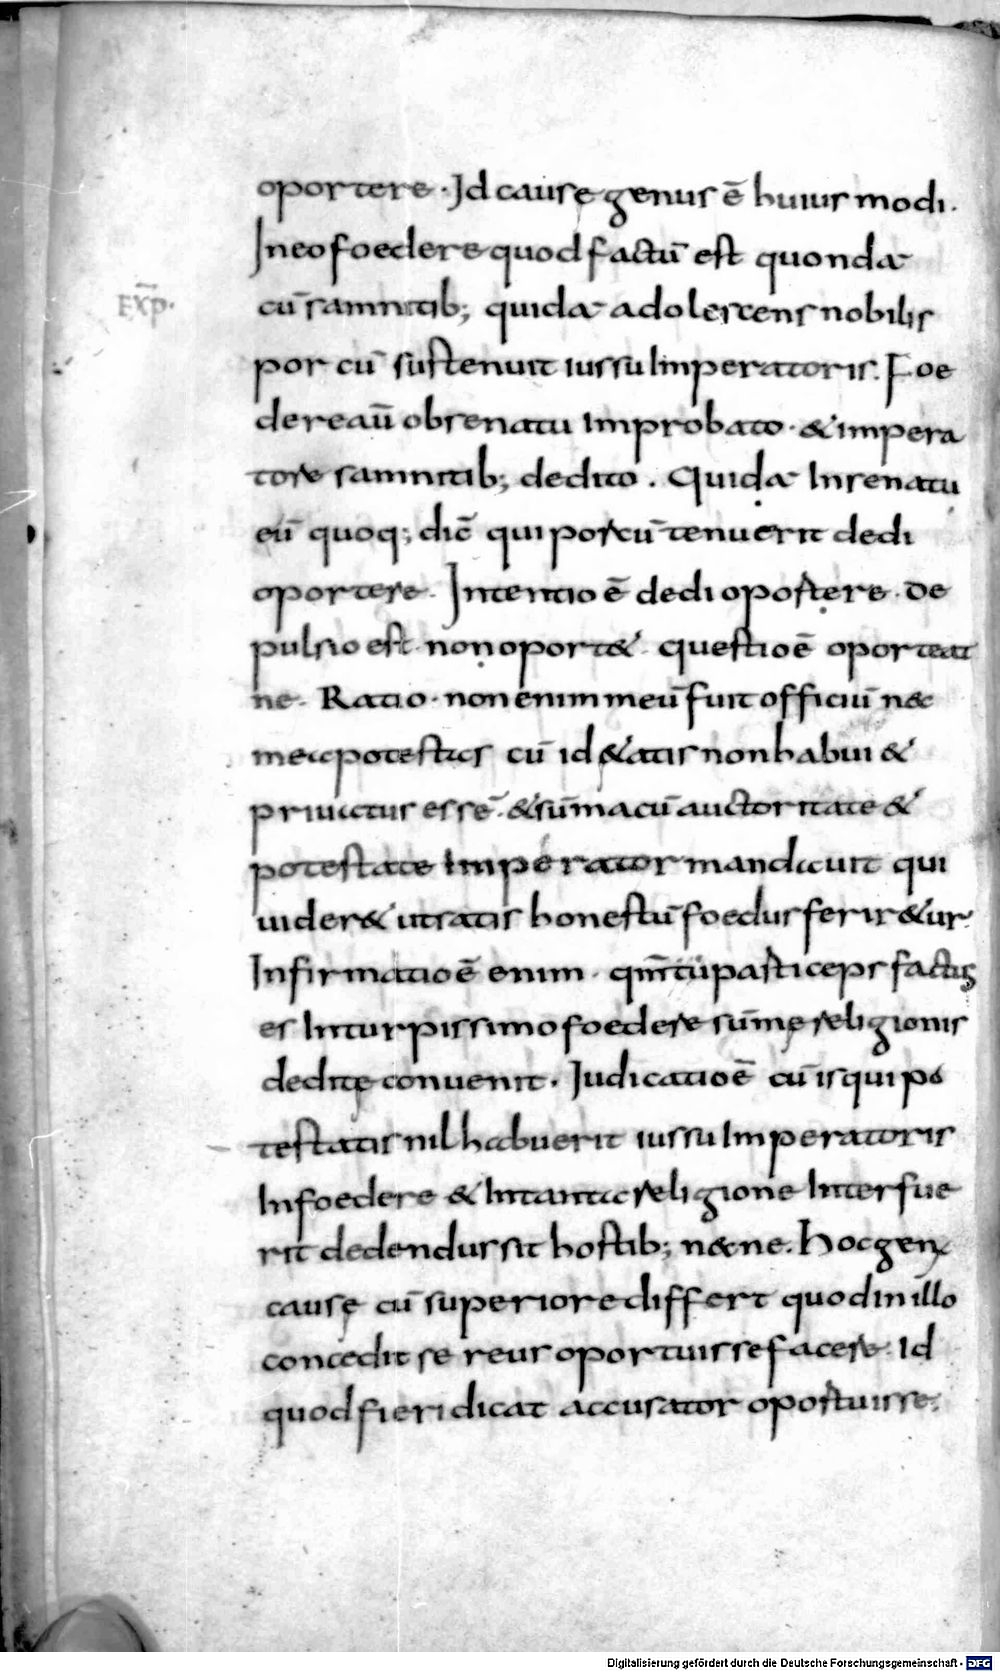 oportere · Id cause genus ē huius modi .
In eo foedere quod factū est quondā
Exp̄.
cū samnitib; quidā adolescens nobilis
por cū sustenuit iussu Imperatoris. Foe
dere aū ob senatu Improbato · & impera
tore samnitib; dedito . Quidā In senatu
eū quoq; dic̄ qui porcū tenuerit dedi
oportere . Intentio ē dedi oportere . De
pulsio est non oport& . questio ē oporteat
ne . Ratio · non enim meū fuit officiū nec
mea potestas cū id &atis non habui &
priuatus essē . & sūma cū auctoritate &
potestate Imperator mandauit qui
uider& ut satis honestū foedus ferir&ur
Infirmatio ē enim · qm̄ tu particeps factus
es In turpissimo foedere sūmę religionis
deditę conuenit . Iudicatio ē cū is qui po
testatis nil habuerit iussu Imperatoris
In foedere & In tanta religione Interfue
rit dedendus sit hostib; n&ne . Hoc gen;
causę cū superiore differt quod in illo
concedit se reus oportuisse facere . Id
quod fieri dicat accusator oportuisse .
Digitalisierung gefördert durch die Deutsche Forschungsgemeinschaft - DFG